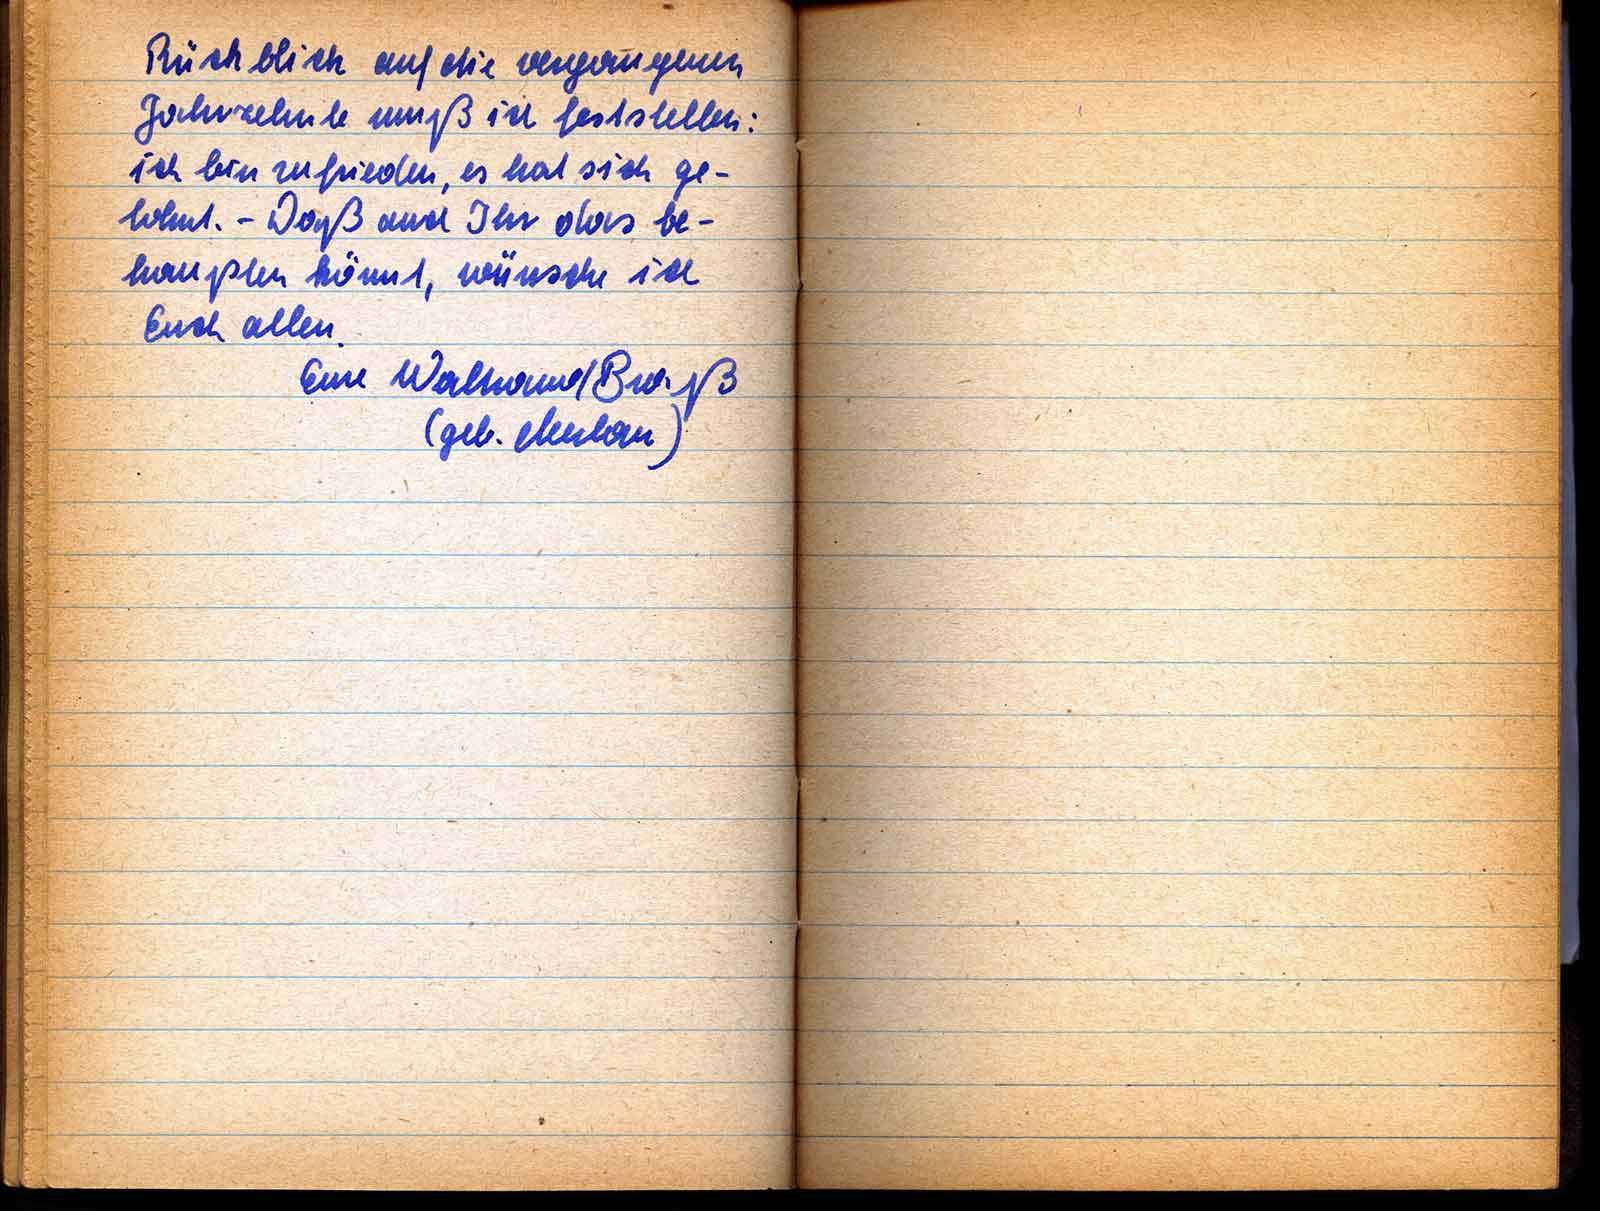 Rückblick auf die vergangenen
Jahrzehnte muß ich feststellen:
ich bin zufrieden, es hat sich ge-
lohnt. - Daß auch Ihr das be-
haupten könnt, wünsche ich
Euch allen.
Eure Waltraud
(geb.